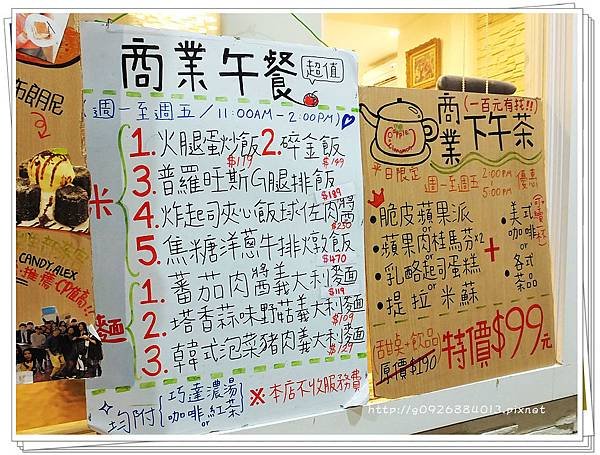 布朗尼
CANDY ALEX
推薦 CP值高!!
商業午餐
超值
週一至週五/11:00AM-2:00PM
米
1.火腿蛋炒飯 $179
2.碎金飯 $149
3.普羅旺斯G腿排飯 $189
4.炸起司夾心飯球佐肉醬 $250
5.焦糖洋蔥牛排燉飯 $470
麵
1.蕃茄肉醬義大利麵 $119
2.塔香蒜味野菇義大利麵 $109
3.韓式泡菜豬肉義大利麵 $129
均附{巧達濃湯 or 咖啡or紅茶
※本店不收服務費
商業下午茶
(一百元有找!!)
apple cinnamon
平日限定
週一至週五 2:00PM 5:00PM 優惠
•脆皮蘋果派
•蘋果肉桂馬芬x2
•乳酪起司蛋糕
•提拉米蘇
+
•美式咖啡
or
•各式茶品
可續杯
甜點+飲品
原價$190
特價$99元
http://g0926884013.pixnet